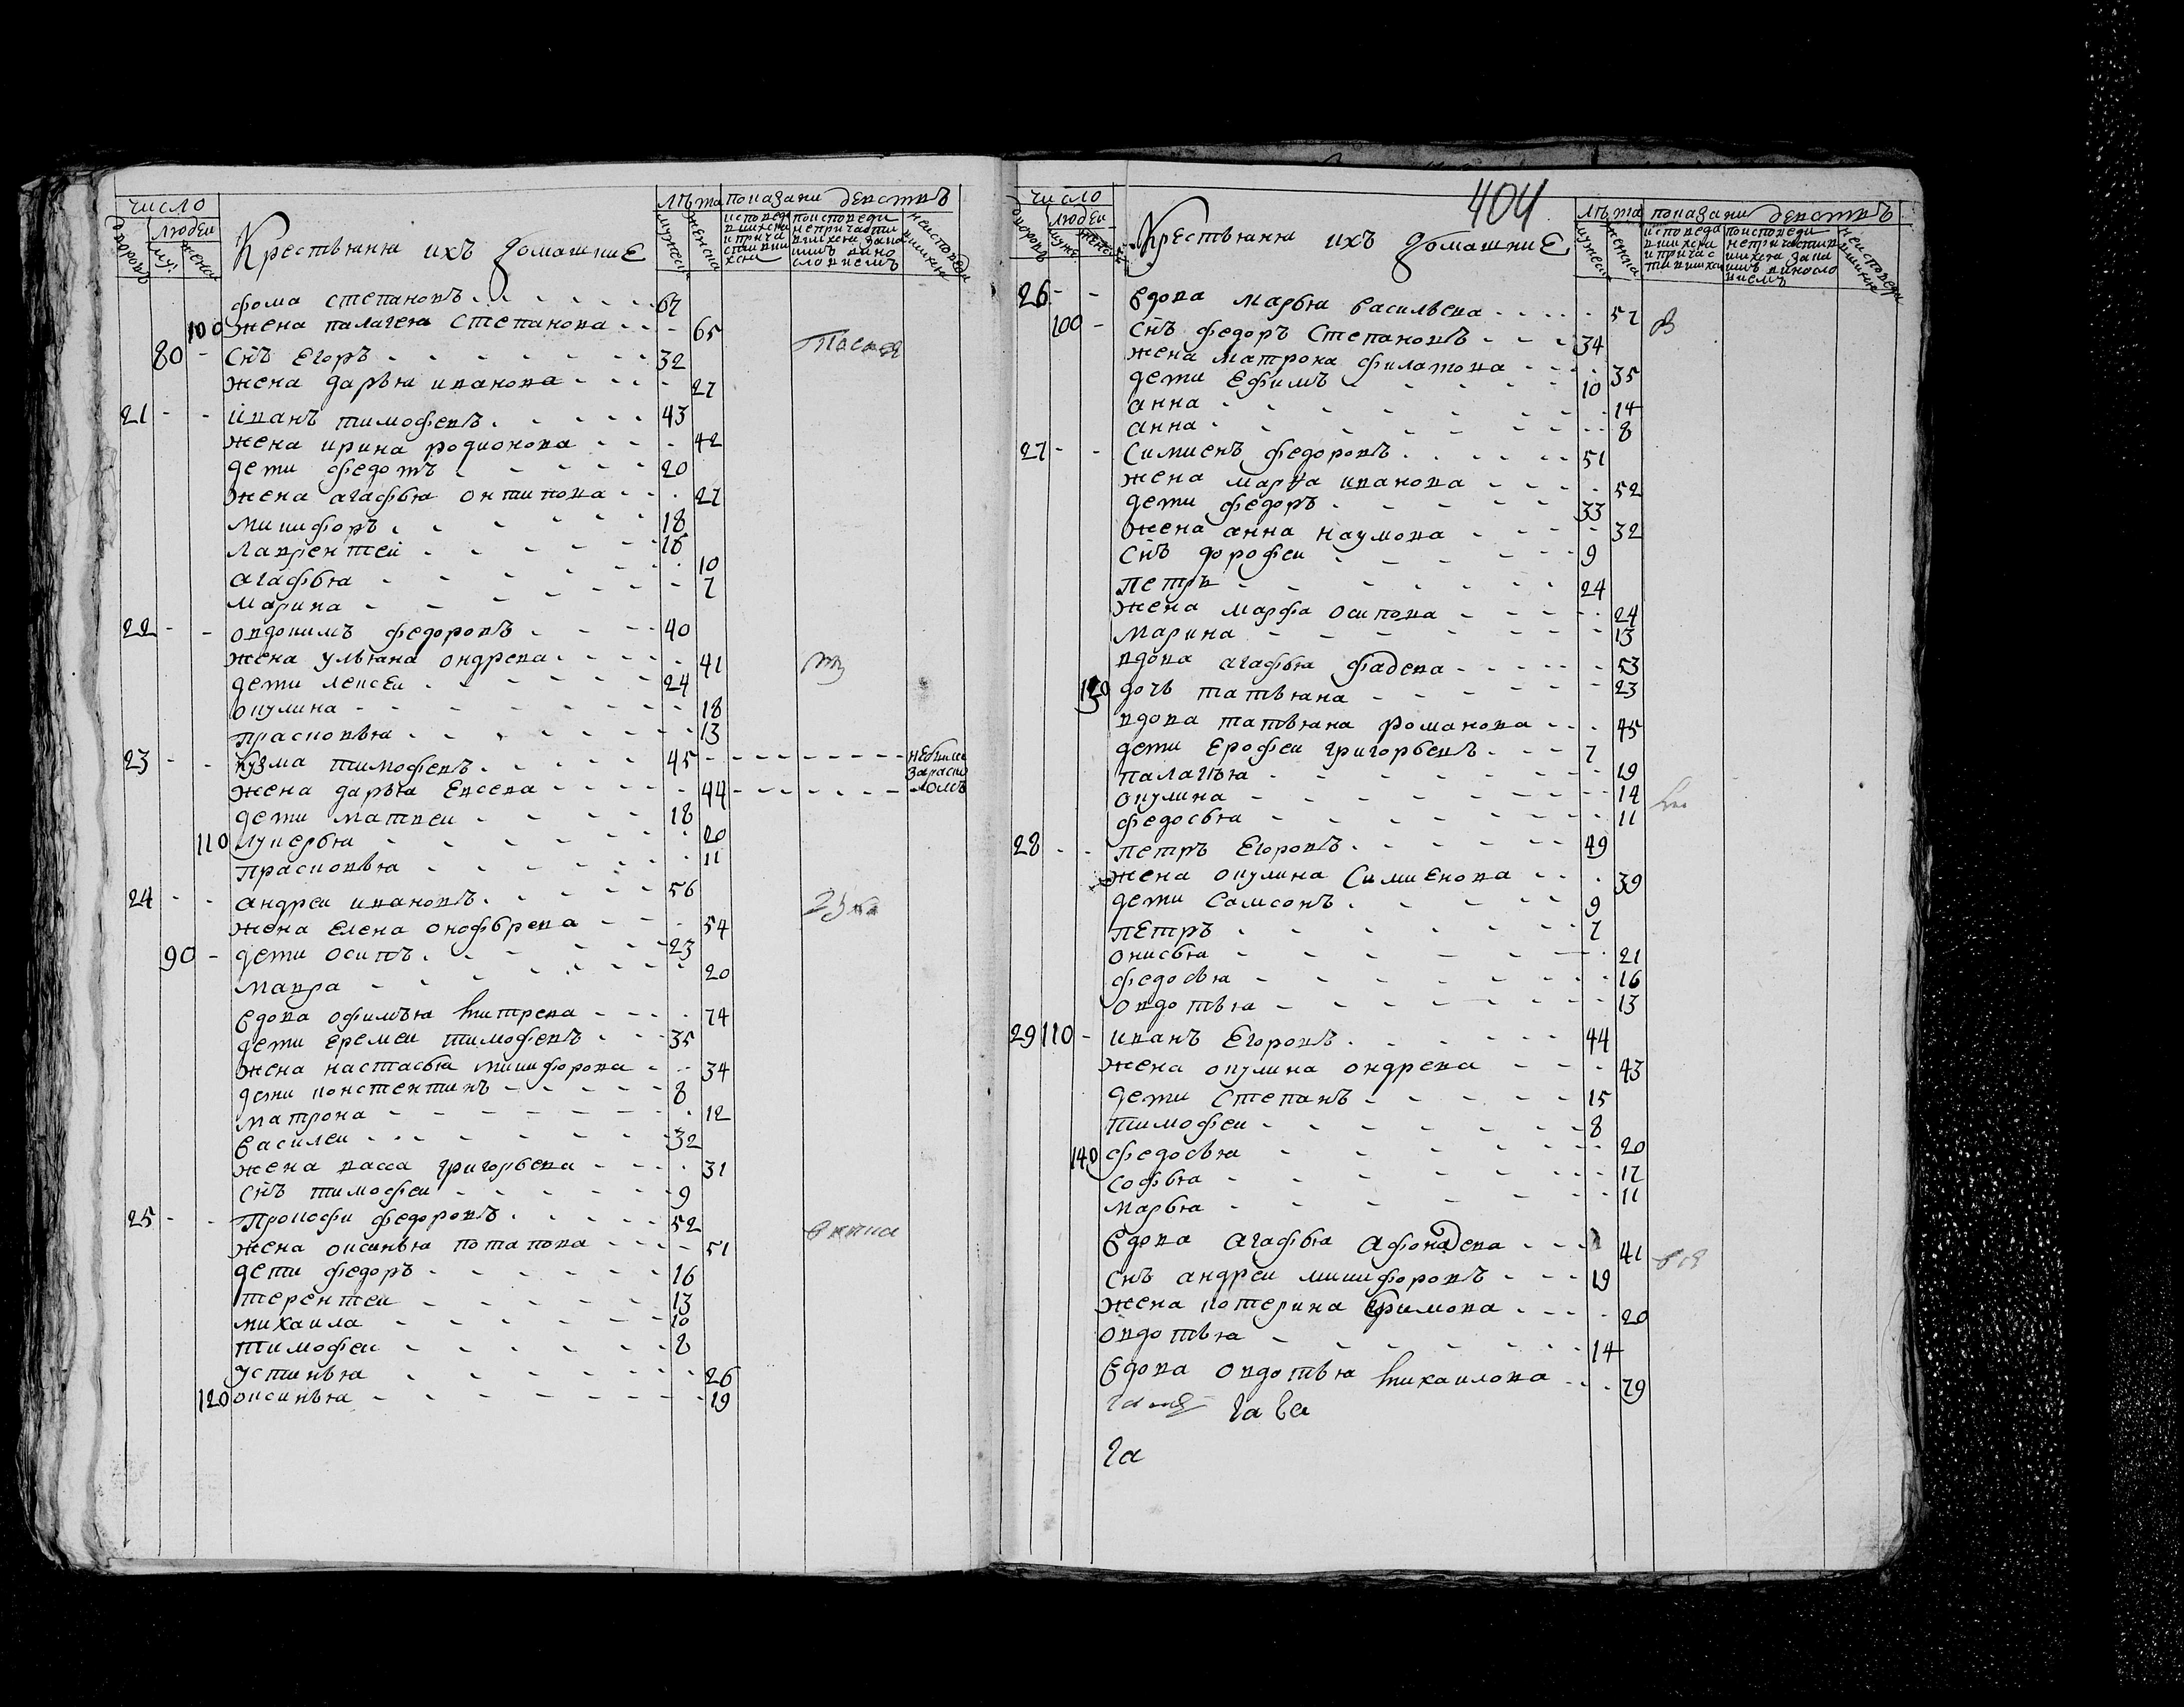 число
людеи
дворовъ
муж
женск
Крестьяня ихъ домашние
лѣта
мужеск
женска
показани деиствъ
фома степановъ 67
100 жена палагея степанова 65
80 снъ Егоръ 32
жена дарья иванова 27
21 иванъ тимофевъ 43
жена ирина родионова 42
дети федотъ 20
жена агафья онтипова 27
микифоръ 18
лаврентеи 16
агафья 10
марина 7
22 овдокимъ федоровъ 40
жена ульяна ондрева 41
дети лексеи 24
окулина 18
прасковья 13
23 кузма тимофевъ 45 небыли
за раско
жена дарья Евсева 44 ломъ
дети матвеи 18
110 лукерья 20
прасковья 11
24 андреи ивановъ 56
жена Елена онофърева 54
90 дети осипъ 23
мавра 20
вдова офимья митрева 74
дети еремеи тимофевъ 35
жена настасья микифорова 34
дети констентинъ 8
матрона 12
василеи 32
жена васса григорьева 31
снъ тимофеи 9
25 Прокофи федоровъ 52
жена оксинья потапова 51
дети федоръ 16
терентеи 13
михаила 10
тимофеи 8
устинья 26
120 оксинья 19
404
число
людеи
дворовъ
муже
женск
Крестьяня ихъ домашние
лѣта
мужеск
женска
показани деиствъ
26 вдова марья васильева 57
100 снъ федоръ Степановъ 34
жена матрона филатова 35
дети Ефимъ 10
анна 14
анна 8
27 Симиенъ федоровъ 51
жена марья иванова 52
дети федоръ 33
жена анна наумова 32
снъ дорофеи 9
петръ 24
жена марфа осипова 24
марина 13
вдова агафья фадева 53
130 дочь татьяна 23
вдова татьяна романова 45
дети Ерофеи григорьевъ 7
палагѣя 19
окулина 14
федосья 11
28 петръ Егоровъ 49
жена окулина Симиенова 39
дети Самсонъ 9
петръ 7
онисья 21
федосья 16
овдотья 13
29 110 иванъ Егоровъ 44
жена окулина ондрева 43
дети Степанъ 15
тимофеи 8
140 федосья 20
софья 17
марья 11
вдова агафья афонадева 41
снъ андреи микифоровъ 19
жена котерина Ефимова 20
овдотья 14
вдова овдотья михаилова 79